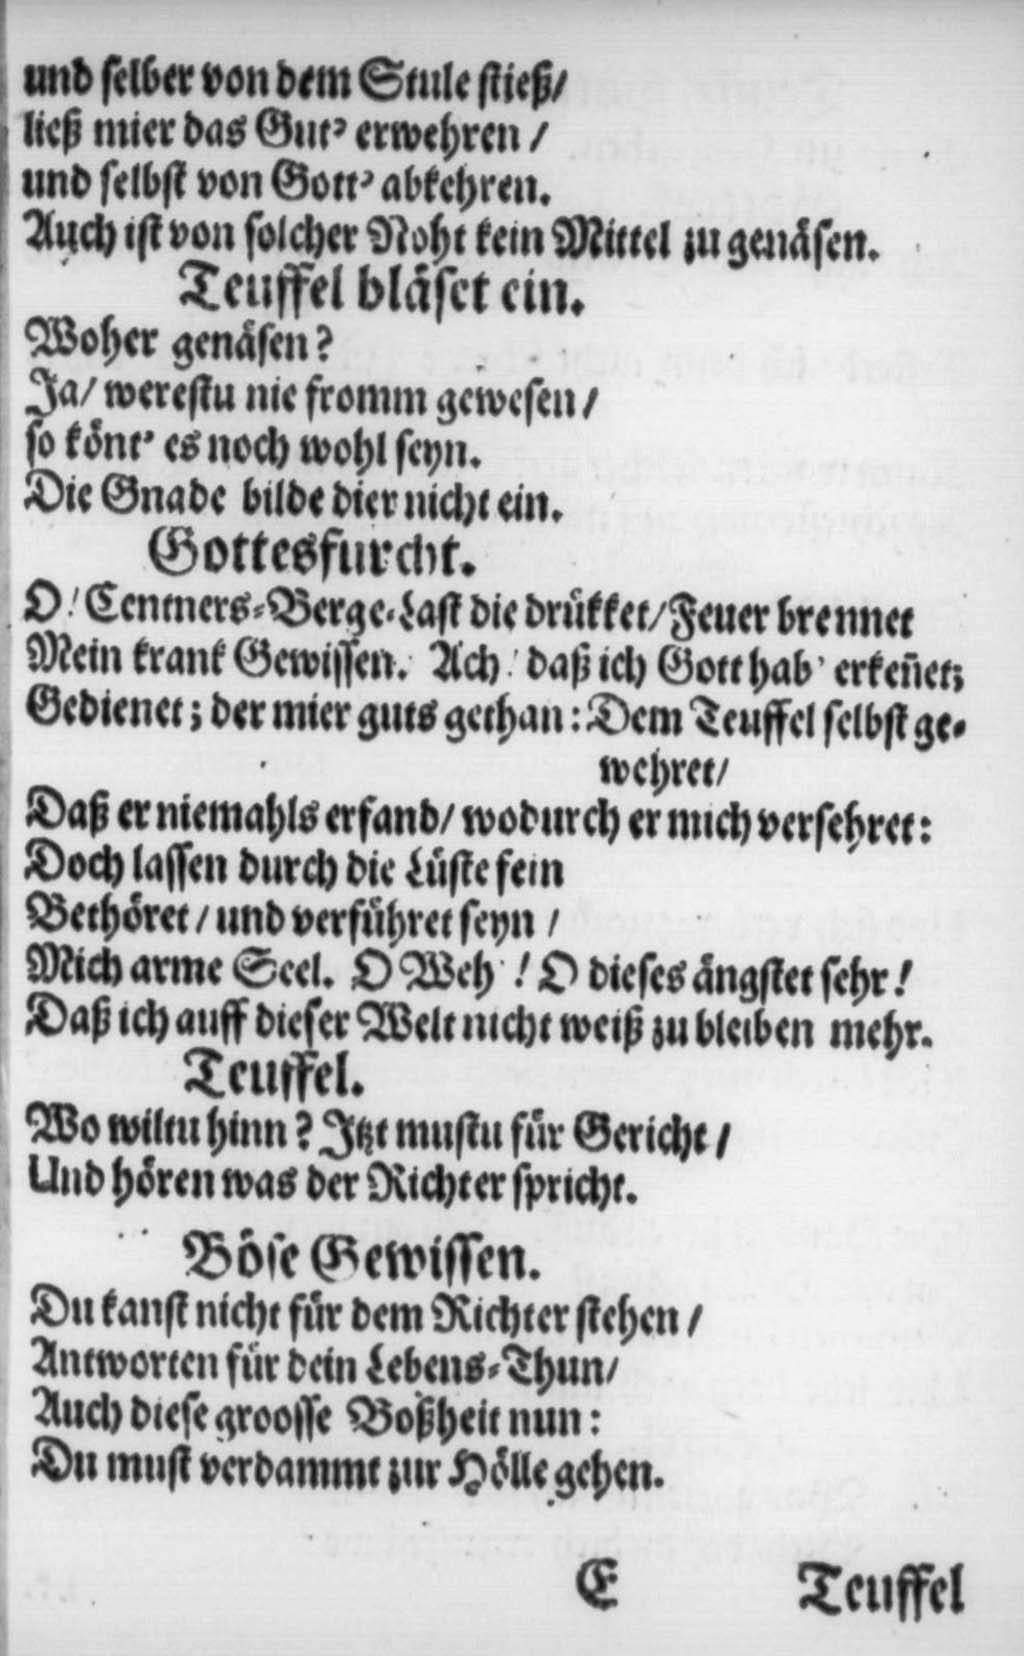 und selber von dem Stule stieß/
ließ mier das Gut' erwehren /
und selbst von Gott' abkehren.
Auch ist von solcher Noht kein Mittel zu genäsen.
Teuffel bläset ein.
Woher genäsen?
Ja/ werestu nie fromm gewesen/
so könt' es noch wohl seyn.
Die Gnade bilde dier nicht ein.
Gottesfurcht.
O! Centners-Berge-Last die drükket/ Feuer brennet
Mein krank Gewissen. Ach! daß ich Gott hab' erkeñet;
Gedienet; der mier guts gethan: Dem Teuffel selbst ge-
wehret/
Daß er niemahls erfand/ wodurch er mich versehret:
Doch lassen durch die Lüste fein
Bethöret / und verführet seyn /
Mich arme Seel. O Weh! O dieses ängstet sehr!
Daß ich auff dieser Welt nicht weiß zu bleiben mehr.
Teuffel.
Wo wiltu hinn? Jtzt mustu für Gericht /
Und hören was der Richter spricht.
Böse Gewissen.
Du kanst nicht für dem Richter stehen /
Antworten für dein Lebens-Thun/
Auch diese groosse Boßheit nun:
Du must verdammt zur Hölle gehen.
E Teuffel